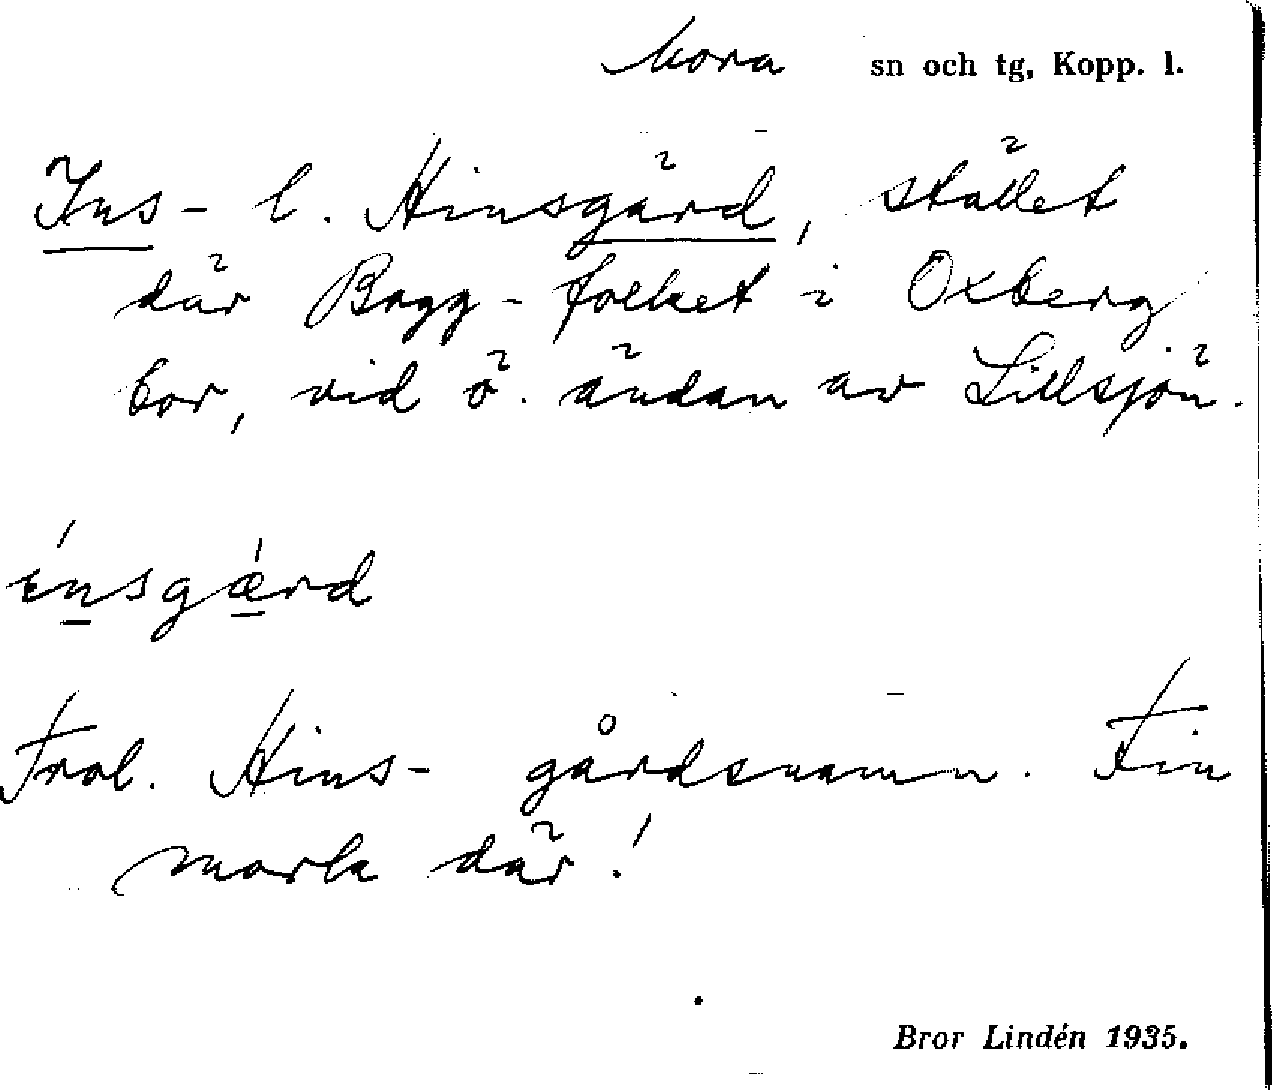 Mora sn och tg, Kopp. l.
Ins- l. Hinsgärd, stället
där Bagg-folket i Oxberg
bor, vid ö. ändan av Lillsjön.
ínsgǽrd
Trol. Hins- gårdsnamn. Fin
mark där!
Bror Lindén 1935.